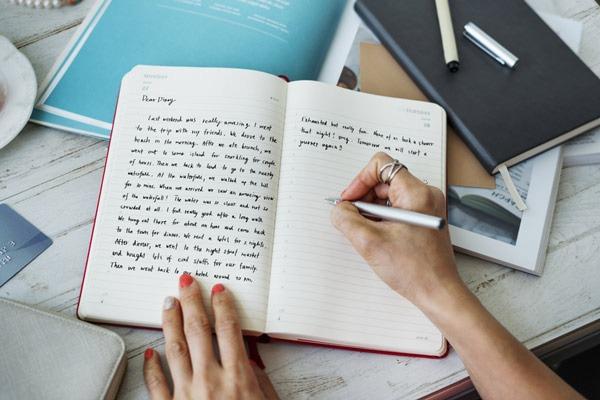 Dear Diary,
Last weekend was really amazing. I went
to the trip with my friends. We drove to the
beach in the morning. After we ate brunch, we
went out to some island for snorkling for couple
of hours. Then we back to land to go to the nearby
waterfalls. At the waterfalls, we walked up the hill
for 30 mins. When we arrived we saw an amazing view
of the waterfall! The water was so clear and not so
crowded at all. I feel really good after a long walk
We hang out there for about an hour and come back
to the town for dinner. We rent a hotel for 2 nights.
After dinner, we went to the night street market
and bought lots of cool stuffs for our family.
Then we went back to hotel around 10 pm.
Exhausted but really fun. None of us took a shower
that night! omg. Tomorrow we will start a
journey again!